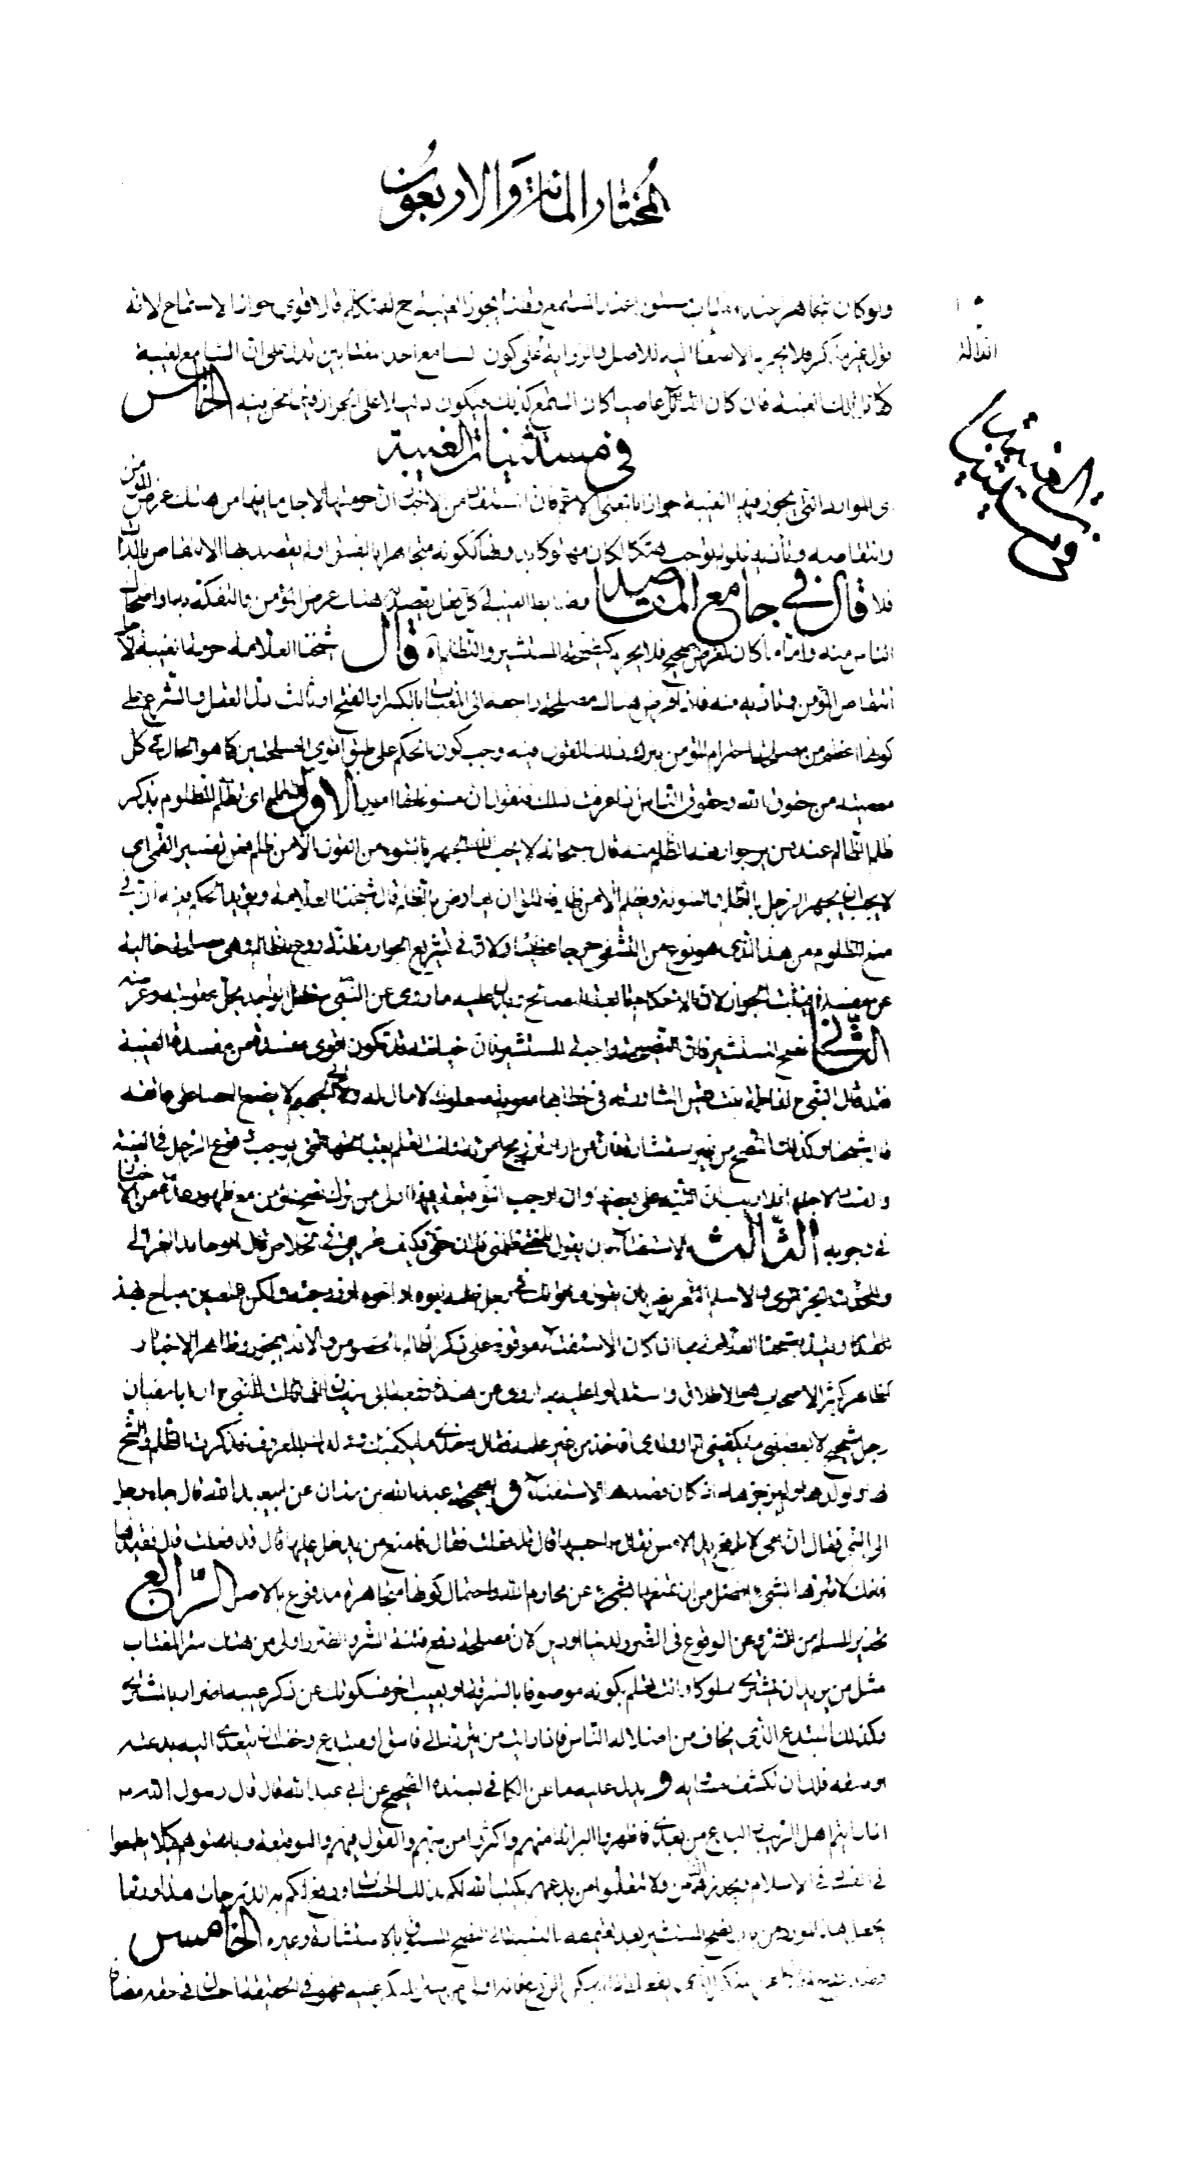 المختار المائة والاربعون
ولو كان متجاهرا عند المغتاب مستورا عند المستمع وقلنا بجواز الغيبة ح للمتكلم فالاقوى جواز الاستماع لانه
قول غير منكر فلا يحرم الاصغاء اليه للاصل والرواية على كون السامع احد مغتابين تدل على ان السامع لغيبة
كقائل تلك الغيبة فان كان القائل عاصيا كان المستمع كذلك فيكون دليلا على الجواز فيما نحن فيه الخامس
في مستثنيات الغيبة
في مستثنيات الغيبة
اى الموارد التي يجوز فيها الغيبة جوازا بالمعنى الاعم فان المستفاد من الاخبار ان حرمتها لاجل ما فيها من هتك عرض المؤمن
وانتقاصه وتأذيه فلو لم يوجب هتكا لكان مهتوكا بدونها لكونه متجاهرا بالفسق او لم يقصد بها الانتقاص بالذات
فلا قال في جامع المقاصد وضابط الغيبة كل فعل يقصد به هتك عرض المؤمن والتفكه به او اضحاك
الناس منه واما ما كان لغرض صحيح فلا يحرم كنصيحة المستشير والتظلم آه قال شيخنا العلامة حرمة الغيبة لاجل
انتقاص المؤمن وتأذيه منه فاذا فرض هناك مصلحة راجعة الى المغتاب بالكسر او الفتح او ثالث دل العقل والشرع على
كونها اعظم من مصلحة احترام المؤمن بترك ذلك القول فيه وجب كون الحكم على طبق اقوى المصلحتين كما هو الحال في كل
معصية من حقوق الله وحقوق الناس اذا عرفت ذلك فنقول ان مسوغاتها امور الاول التظلم اى تظلم المظلوم بذكر
ظلم الظالم عند من يرجو رفع الظلم منه قال سبحانه لا يحب الله الجهر بالسوء من القول الا من ظلم فعن تفسير القمى اى
لا يحب ان يجهر الرجل بالظلم والسوء ويظلم الا من ظلم فاطلق له ان يعارضه بالظلم قال شيخنا العلامة ويؤيد الحكم فيه ان في
منع المظلوم من هذا الذى هو نوع من التشفى حرجا عظيما ولان في تشريع الجواز مظنة ردع الظالم وهى مصلحة خالية
عن مفسدة فيثبت الجواز لان الاحكام تابعة للمصالح ويدل عليه ما روى عن النبى ص مطل الواجد يحل عقوبته وعرضه
الثاني نصح المستشير فان النصيحة واجبة للمستشير فان خيانته قد تكون اقوى مفسدة من مفسدة الغيبة
فقد قال النبى ص لفاطمة بنت قيس المشاورة في خطابها معوية صعلوك لا مال له وابو الجهم لا يضع العصا على عاتقه
وكذلك النصح من غير استشارة فان من اراد تزويج امرءة تعلم بقبايحها التى يوجب وقوع الرجل في الفتنة
والفساد لاجلها فلا ريب ان التنبيه على بعضها وان اوجب الوقيعة فيها اولى من ترك نصح المؤمن مع ظهور عدة من الاخبار
في وجوبه الثالث الاستفتاء بان يقول للمفتى ظلمنى فلان حقى فكيف طريقى في الخلاص قال ابو حامد الغزالى
والمحدث الجزائرى والاسلم التعريض بان يقول ما قولك في رجل ظلمه ابوه او اخوه او زوجته ولكن التعيين مباح بهذا
القدر وقيده شيخنا العلامة بما اذا كان الاستفتاء موقوفا على ذكر الظالم بالخصوص والا فلا يجوز وظاهر الاخبار
كظاهر كثير الاصحاب هو الاطلاق واستدلوا عليه بما روى من هند زوجة ابى سفيان انها قالت للنبى ص ان ابا سفيان
رجل شحيح لا يعطينى ما يكفينى انا وولدى افاخذ من غير علمه فقال خذى ما يكفيك وولدك بالمعروف فذكرت الظلم والشح
لها ولولدها ولم يزجرها اذ كان قصدها الاستفتاء وصحيحة عبد الله بن سنان عن ابى عبد الله قال جاء رجل
الى النبى فقال ان امى لا تدفع يد لامس فقال احبسها قال قد فعلت فقال فامنع من يدخل عليها قال قد فعلت قال فقيدها
فانك لا تبرها بشىء افضل من ان تمنعها عن محارم الله واحتمال كونها متجاهرة مدفوع بالاصل الرابع
تحذير المسلم من الشر وعن الوقوع في الضرر لدنيا او دين لان مصلحة دفع فتنة الشر والضرر اولى من هتك ستر المغتاب
مثل من يريد ان يشترى مملوكا وانت تعلم بكونه موصوفا بالسرقة او بعيب اخر فسكوتك عن ذكر عيبه اضرار بالمشترى
وكذلك المبتدع الذى يخاف من اضلاله الناس فاذا رايت من يتردد الى فاسق او مبتدع وخفت ان يتعدى اليه بدعته
او فسقه فلك ان تكشف مساويه و يدل عليه ما عن الكافى بسنده الصحيح عن ابى عبد الله قال قال رسول الله ص
اذا رايتم اهل الريب والبدع من بعدى فاظهروا البرائة منهم واكثروا من سبهم والقول فيهم والوقيعة وباهتوهم كيلا يطمعوا
في الفساد في الاسلام ويحذرهم الناس ولا يتعلموا من بدعهم يكتب الله لكم بذلك الحسنات ويرفع لكم به الدرجات هذا وربما
يجعل هذا المورد من باب نصح المستشير بعد تعميمه بالنسبة الى النصح المسبوق بالاستشارة وغيره الخامس